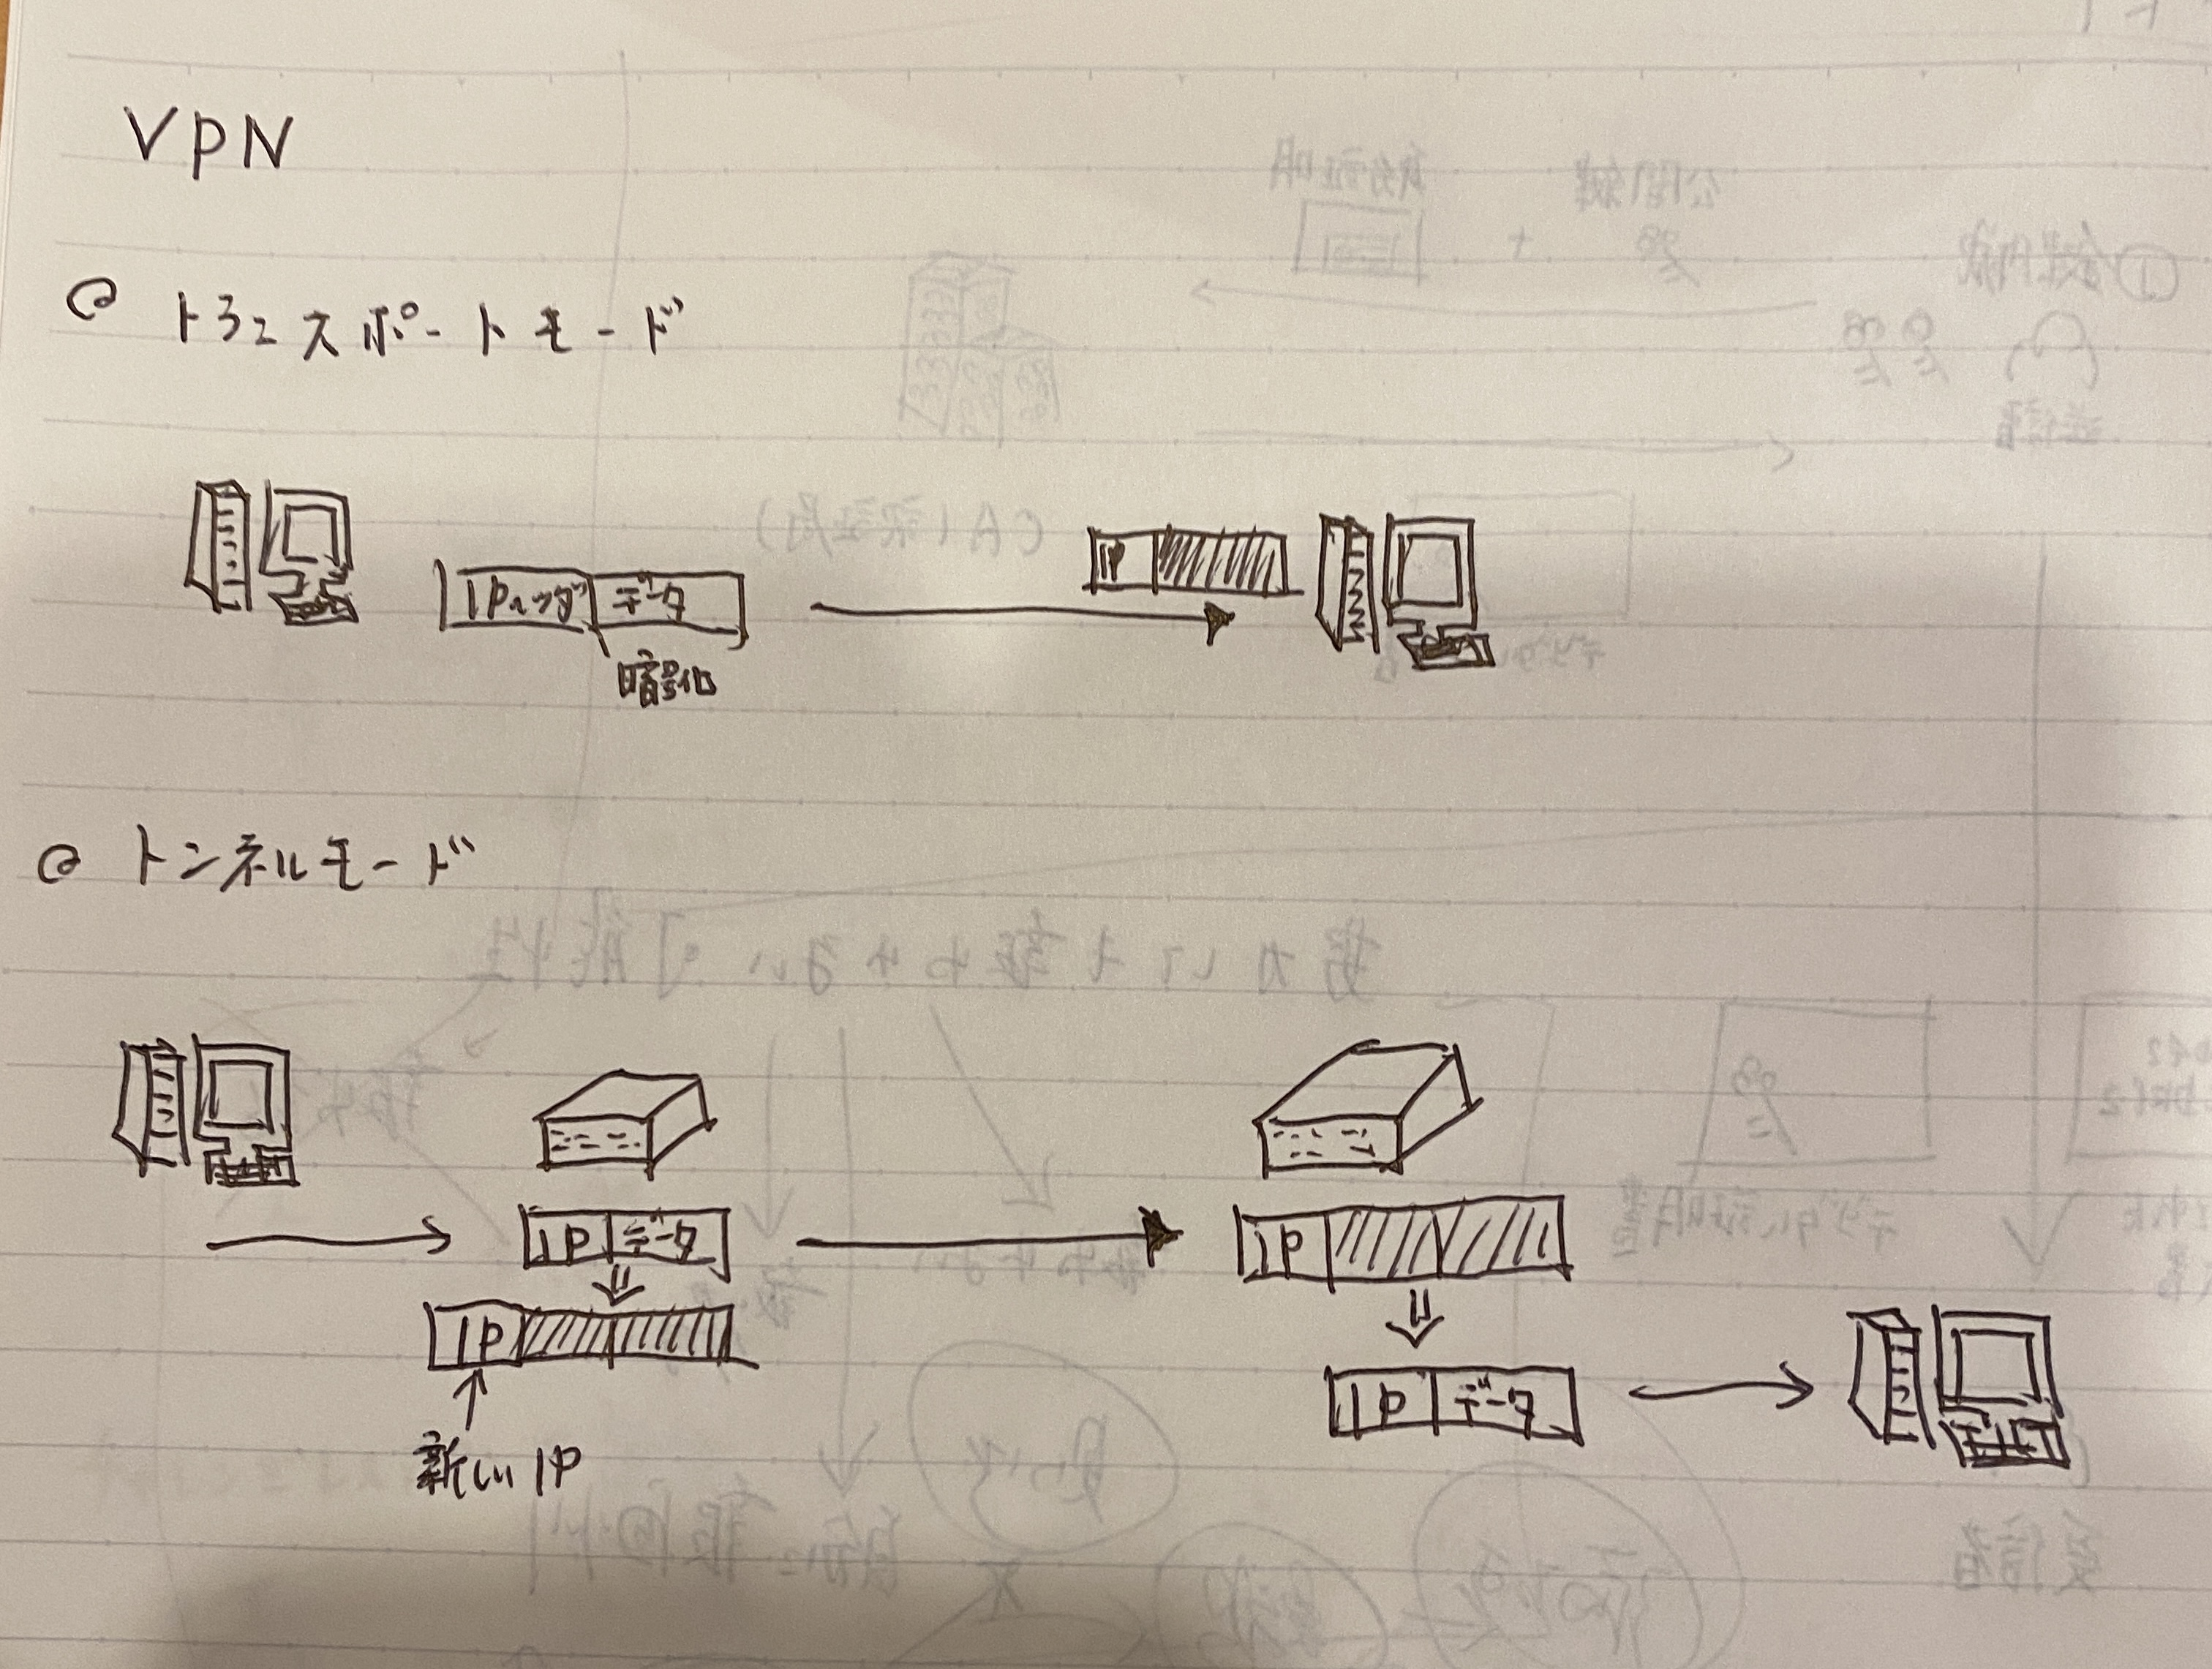 VPN
トランスポートモード
IPヘッダ データ
暗号化
IP
トンネルモード
IP データ
IP
新しいIP
IP
IP データ